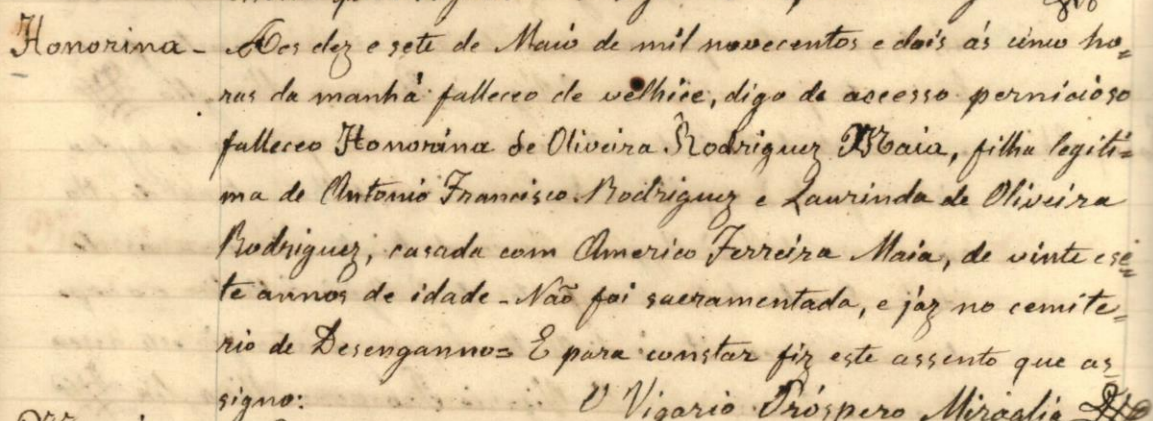 Honorina - Aos dez e sete de Maio de mil novecentos e dois ás cinco ho=
ras da manhã falleceo de velhice, digo de accesso pernicioso
falleceo Honorina de Oliveira Rodriguez Maia, filha legiti=
ma de Antonio Francisco Rodriguez e Laurinda de Oliveira
Rodriguez, casada com Americo Ferreira Maia, de vinte e se=
te annos de idade - Não foi sacramentada, e jaz no cemite=
rio de Desenganno= E para constar fiz este assento que as=
signo:
O Vigario Próspero Miraglia